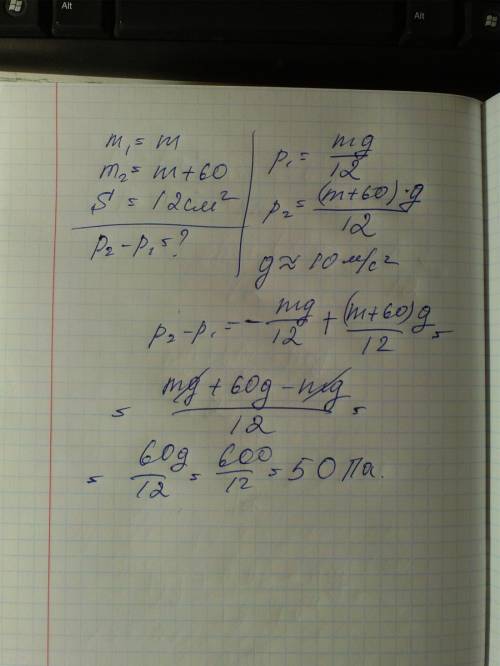 Alt
Alt
m₁ = m
m₂ = m+60
S = 12 см²
p₂ - p₁ = ?
p₁ = mg/12
p₂ = (m+60)·g/12
g ≈ 10 м/с²
p₂ - p₁ = - mg/12 + (m+60)g/12 =
= mg + 60g - mg/12 =
= 60g/12 = 600/12 = 50 Па.